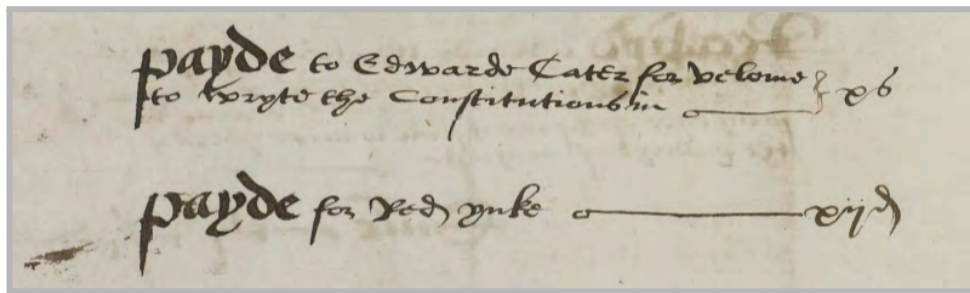 payde to Edwarde Cater for velome xs
to wryte the Constitutions in
payde for Red ynke xijd